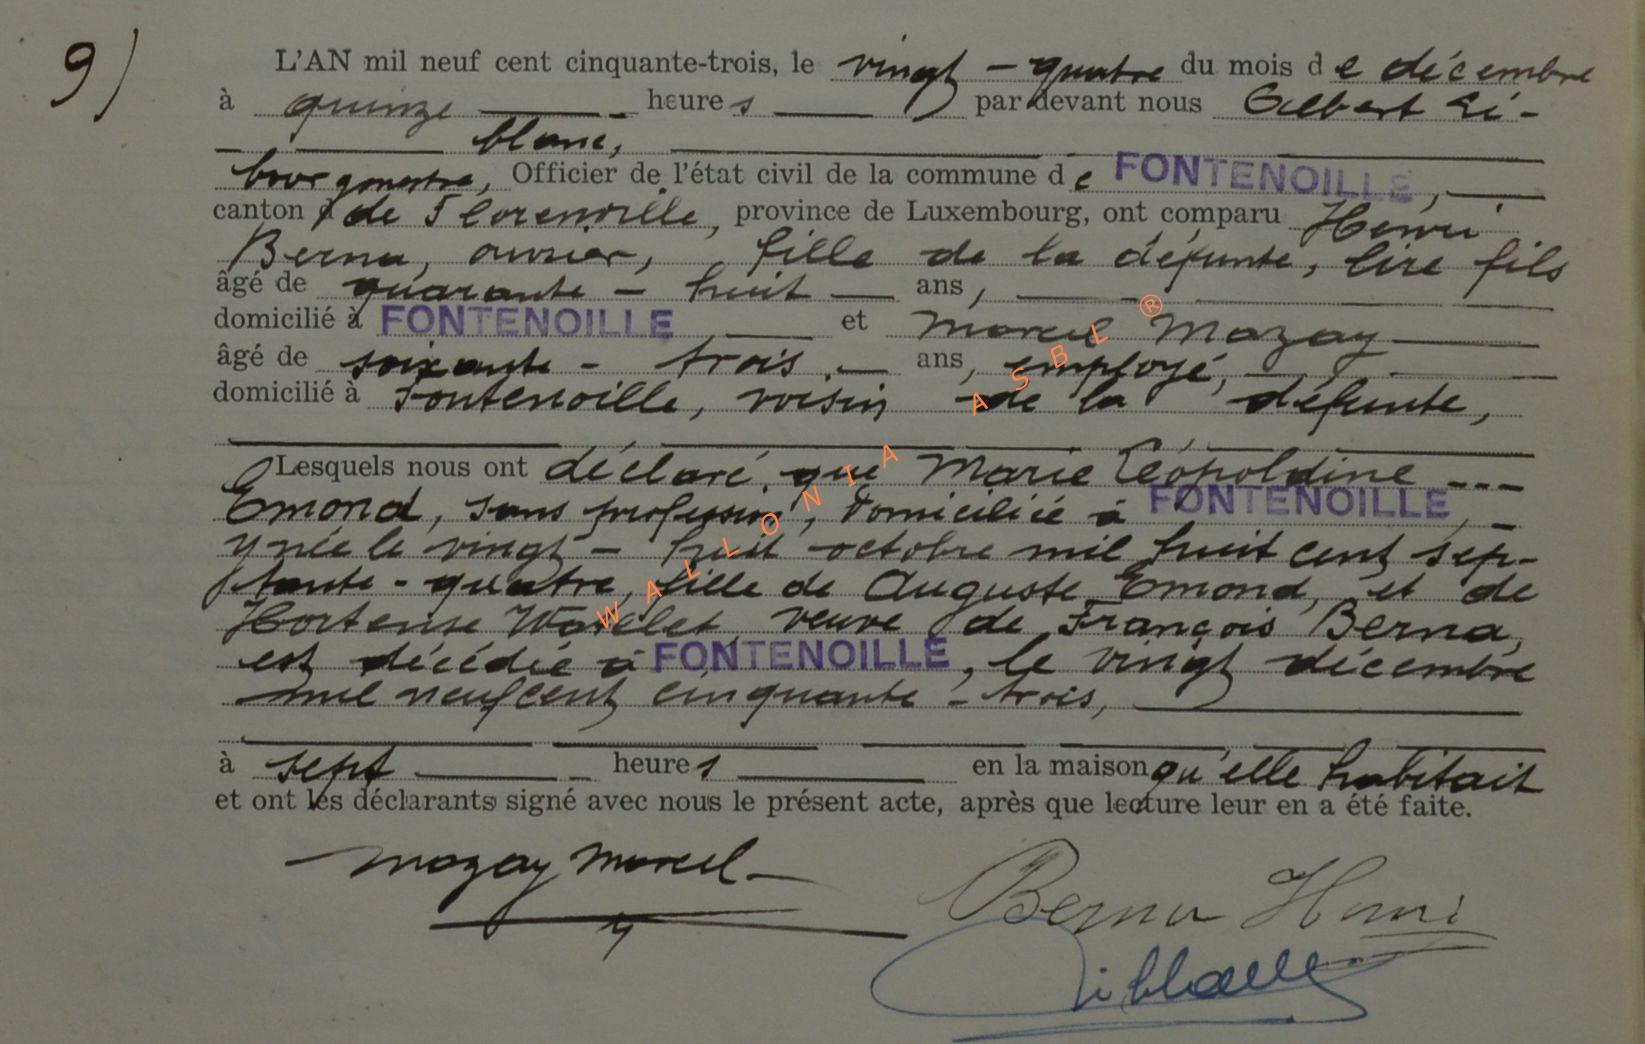 9) L'AN mil neuf cent cinquante-trois, le vingt - quatre du mois de décembre
à quinze heures par devant nous Gilbert Li-
blanc,
bourgmestre, Officier de l'état civil de la commune de FONTENOILLE,
canton de Florenville, province de Luxembourg, ont comparu Henri
Berna, ouvrier, fille de la défunte, lire fils
âgé de quarante - huit ans,
domicilié à FONTENOILLE et Marcel Mazay
âgé de soixante - trois ans, employé,
domicilié à Fontenoille, voisin de la défunte,
Lesquels nous ont déclaré que Marie Léopoldine ---
Emond, sans profession, domiciliée à FONTENOILLE,
y née le vingt - huit octobre mil huit cent sep-
tante - quatre, fille de Auguste Emond, et de
Hortense Watelet, veuve de François Berna,
est décédée à FONTENOILLE, le vingt décembre
mil neuf cent cinquante - trois,
à sept heures en la maison qu'elle habitait
et ont les déclarants signé avec nous le présent acte, après que lecture leur en a été faite.
Mazay Marcel
Berna Henri
WALLONIA ASBL ®